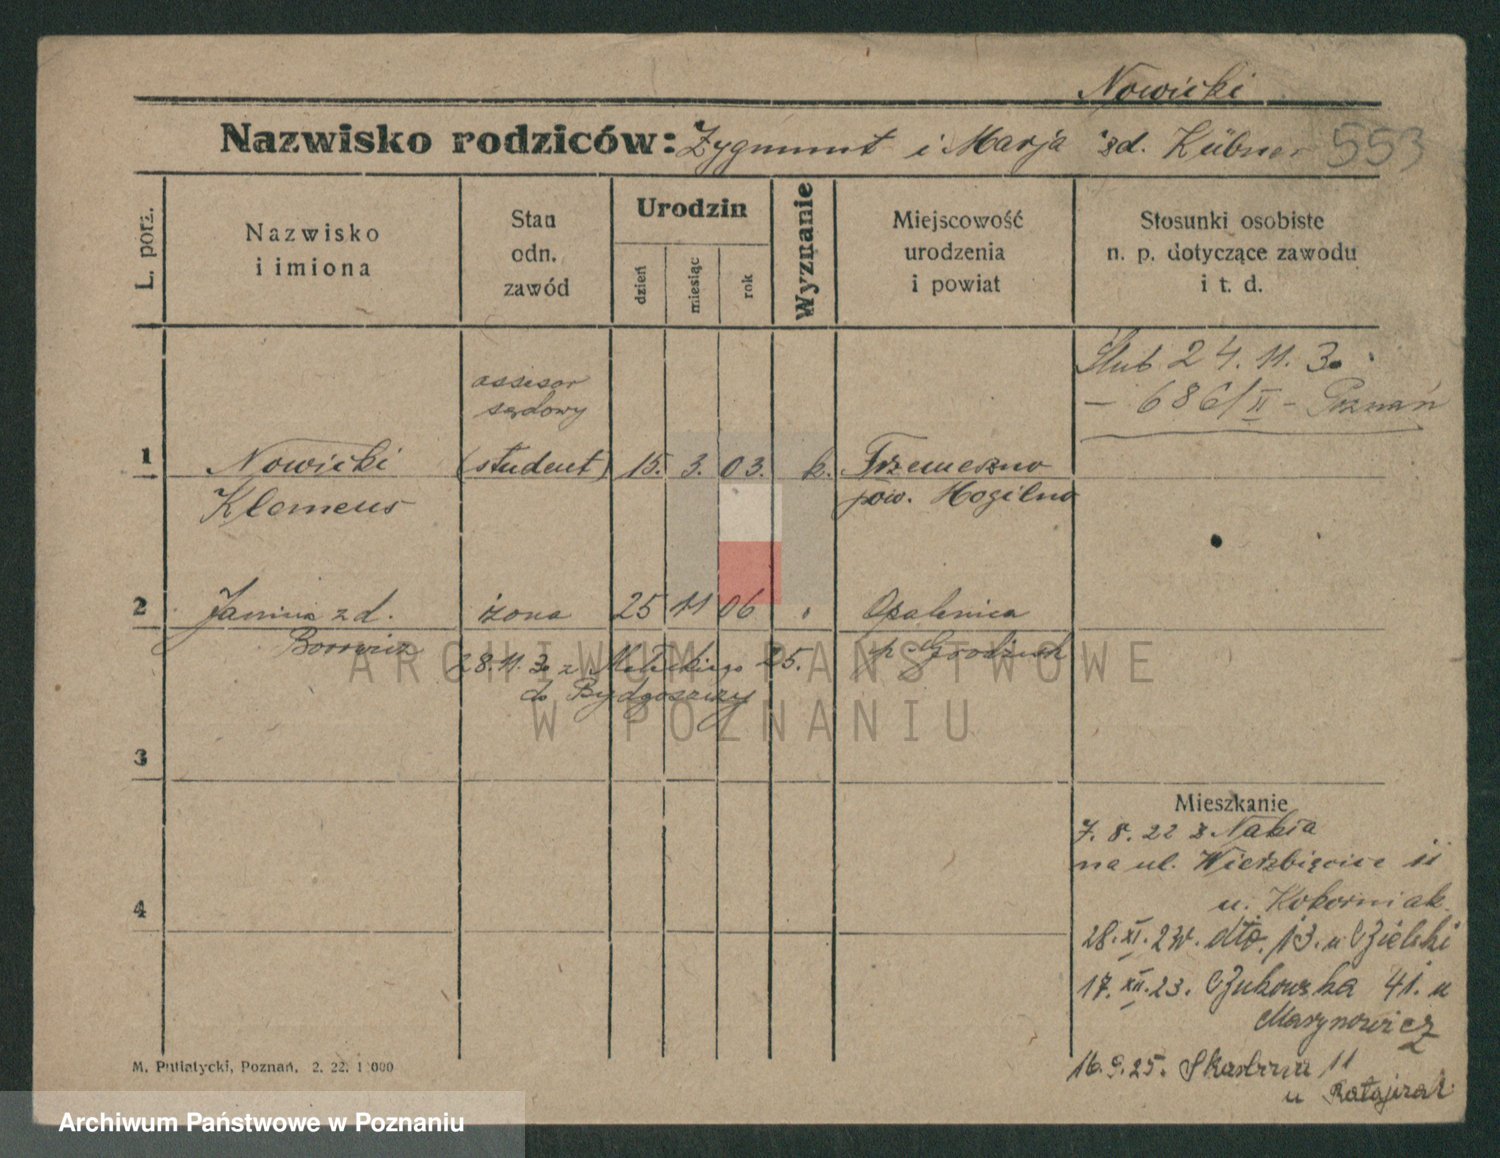 Nowicki
Nazwisko rodziców: Zygmunt i Marja zd. Kübner 553
L. porz.
Nazwisko
i imiona
Stan
odn.
zawód
Urodzin
dzień
miesiąc
rok
Wyznanie
Miejscowość
urodzenia
i powiat
Stosunki osobiste
n. p. dotyczące zawodu
i t. d.
Ślub 24. 11. 30.
— 686/II - Poznań
assesor
sądowy
1 Nowicki (student) 15. 3. 03. k. Trzemeszno
Klemens pow. Mogilno
2 Janina zd. żona 25 11 06 " Opalenica
p. Grodzisk
28.11.30 z 25.
do Bydgoszczy
3
4
Mieszkanie
7. 8. 22 z Nakła
na ul. Wierzbięcice 11
u. Kokorniak
28. XI. 22r. dto. 13. u
17. XII. 23. Żukowska 41. u
Marynowicz
16. 9. 25. 11
u Ratajczak
M. Putiatycki, Poznań, 2. 22. 1 000
ARCHIWUM PAŃSTWOWE
W POZNANIU
Archiwum Państwowe w Poznaniu